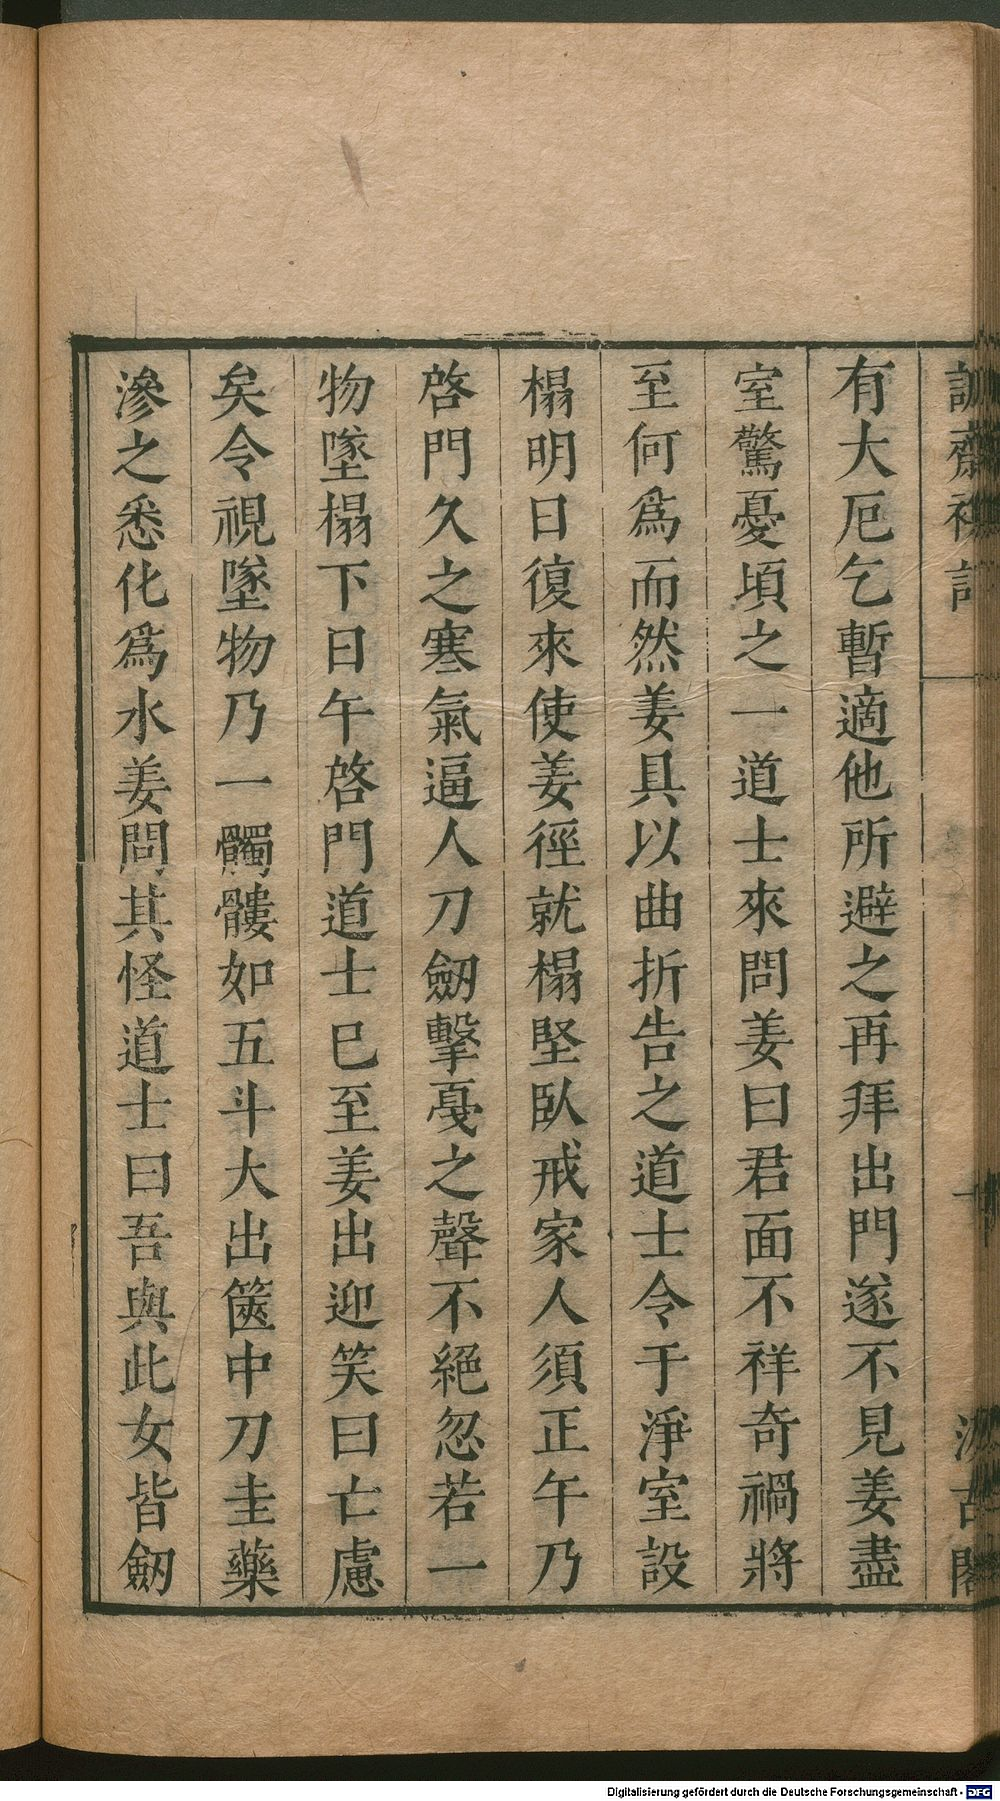 有大厄乞暫適他所避之再拜出門遂不見姜盡
室驚憂頃之一道士來問姜曰君面不祥奇禍將
至何爲而然姜具以曲折告之道士令于淨室設
榻明日復來使姜徑就榻堅臥戒家人須正午乃
啓門久之寒氣逼人刀劒擊戞之聲不絕忽若一
物墜榻下日午啓門道士已至姜出迎笑曰亡慮
矣令視墜物乃一髑髏如五斗大出篋中刀圭藥
滲之悉化爲水姜問其怪道士曰吾與此女皆劒
Digitalisierung gefördert durch die Deutsche Forschungsgemeinschaft - DFG